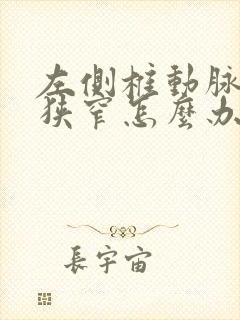 左側椎動脉
狹窄怎麼办
長宇宙